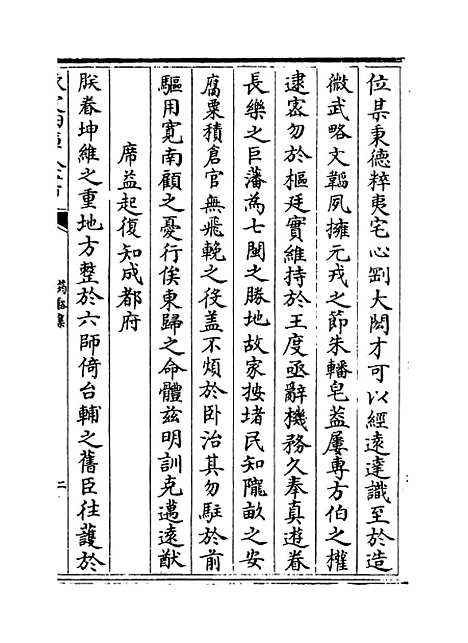 位某秉德粹夷宅心剛大閎才可以經遠達識至於造
微武略文韜夙擁元戎之節朱轓皂葢屢專方伯之權
逮宻勿於樞廷實維持於王度亟辭機務久奉真遊眷
長樂之巨藩為七閩之勝地故家按堵民知隴畝之安
腐粟積倉官無飛輓之役盖不煩於卧治其勿駐於前
驅用寛南顧之憂行俟東歸之命體兹明訓克邁遠猷
席益起復知成都府
朕眷坤維之重地方整於六師倚台輔之舊臣往䕶於